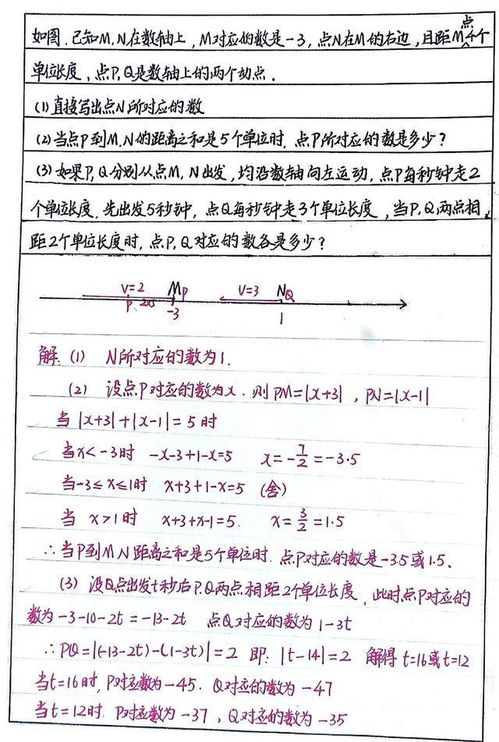 如图,已知M,N在数轴上,M对应的数是-3,点N在M的右边,且距点M4个
单位长度,点P,Q是数轴上的两个动点.
(1)直接写出点N所对应的数
(2)当点P到M,N的距离之和是5个单位时,点P所对应的数是多少?
(3)如果P,Q分别从点M,N出发,均沿数轴向左运动,点P每秒钟走2
个单位长度,先出发5秒钟,点Q每秒钟走3个单位长度,当P,Q两点相
距2个单位长度时,点P,Q对应的数各是多少?
V=2 M P V=3 N Q
P -3 1
解:(1) N所对应的数为1.
(2) 设点P对应的数为x.则PM=|x+3|,PN=|x-1|
当|x+3|+|x-1|=5时
当x<-3时 -x-3+1-x=5 x=-7/2=-3.5
当-3≤x≤1时 x+3+1-x=5 (舍)
当 x>1时 x+3+x-1=5. x=3/2=1.5
∴当P到M,N距离之和是5个单位时.点P对应的数是-3.5或1.5.
(3) 设Q点出发t秒后P,Q两点相距2个单位长度,此时点P对应的
数为-3-10-2t=-13-2t 点Q对应的数为1-3t
∴PQ=|(-13-2t)-(1-3t)|=2 即:|t-14|=2 解得t=16或t=12
当t=16时,P对应数为-45.Q对应的数为-47
当t=12时.P对应数为-37,Q对应的数为-35